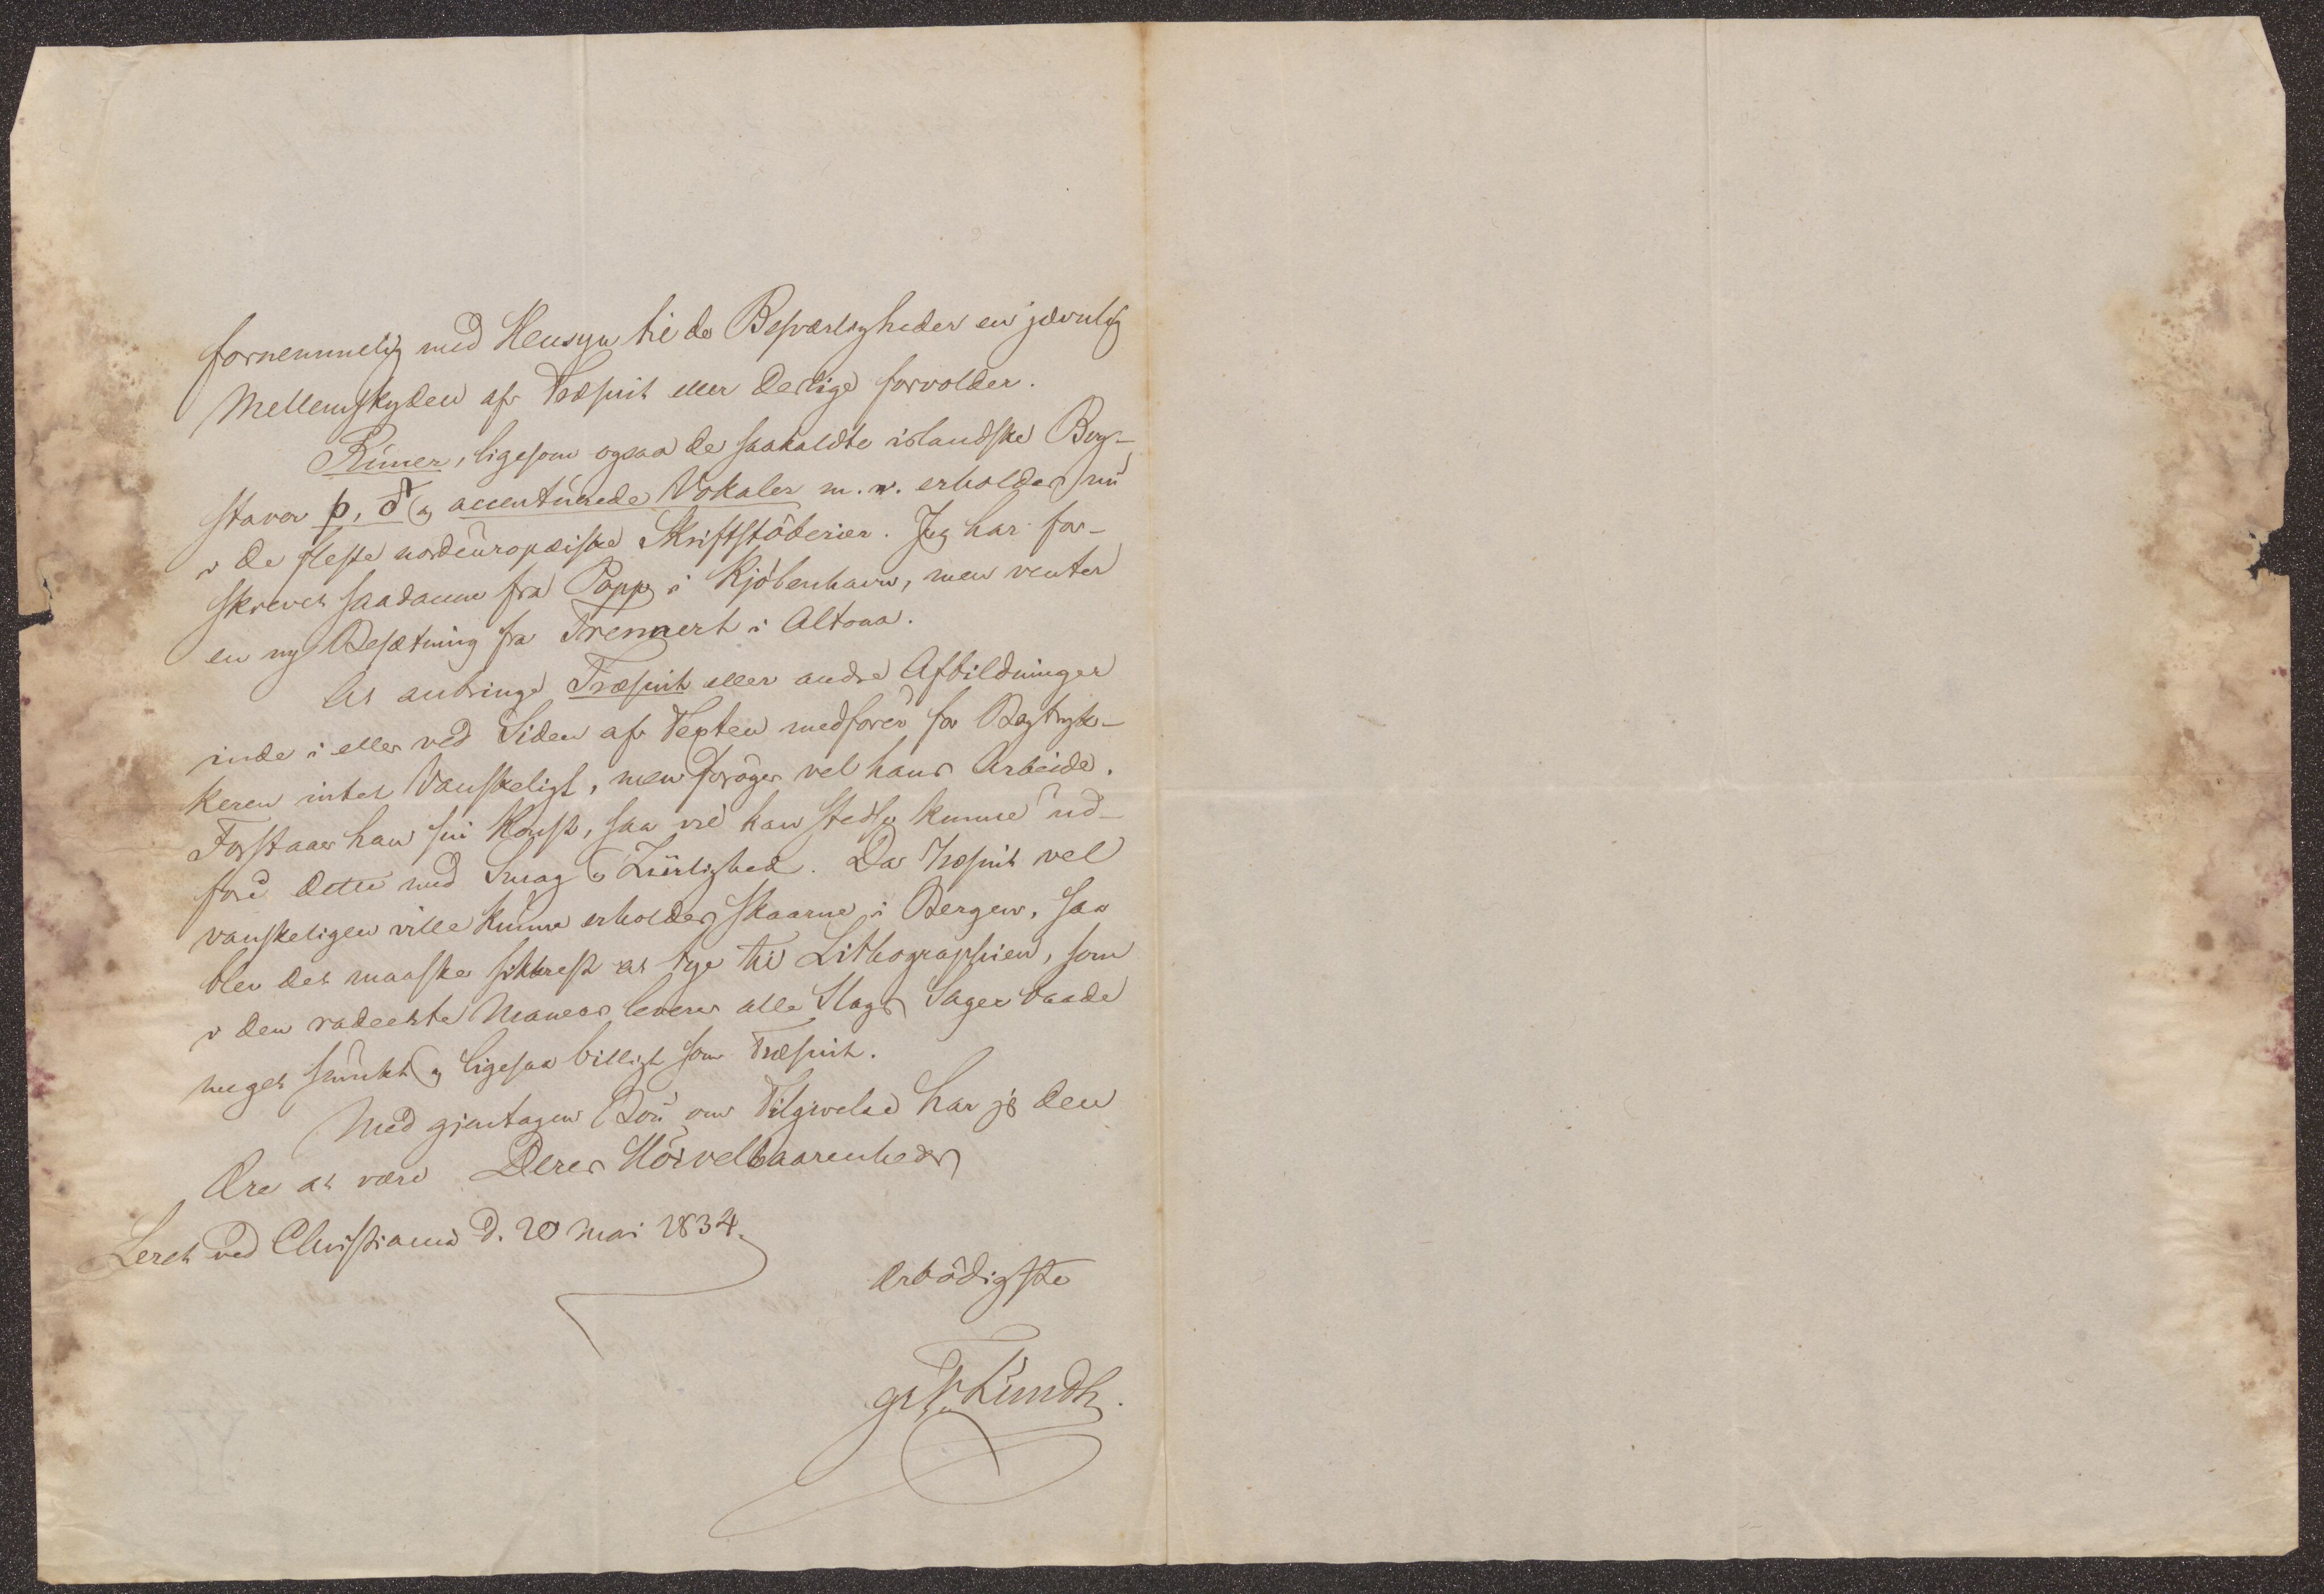 fornemmelig med Hensyn til de Besværligheder en jævnlig
Mellemskyden af Træsnit eller deslige forvolder.
Rúner, ligesom ogsaa de saakaldte islandske Bog-
staver þ, ð og accentúerede Vokaler m.v. erholdes nú
i de fleste nordeúropæiske Skriftstöberier. Jeg har for-
skrevet saadanne fra Popp i Kjöbenhavn, men venter
en ny Besætning fra Trennert i Altona.
At anbringe Træsnit eller andre Afbildninger
inde i eller ved Siden af Texten medförer for Bogtryk-
keren intet Vanskeligt, men foröger vel hans Arbeide.
Forstaaer han sin Konst, saa vil han stedse kunne úd-
före dette med Smag og Ziirlighed. Da Træsnit vel
vanskeligen ville kúnne erholdes skaarne i Bergen, saa
blev det maaske sikkrest at tye til Lithographien, som
i den raderte Maneer leverer alle Slags Sager baade
meget smúkt og ligesaa billigt som Træsnit.
Med gjentagen Bön om Tilgivelse har jeg den
Ære at være Deres Höivelbaarenheds
Leret ved Christiania d. 20 Mai 1834.
ærbödigste
Lúndh.